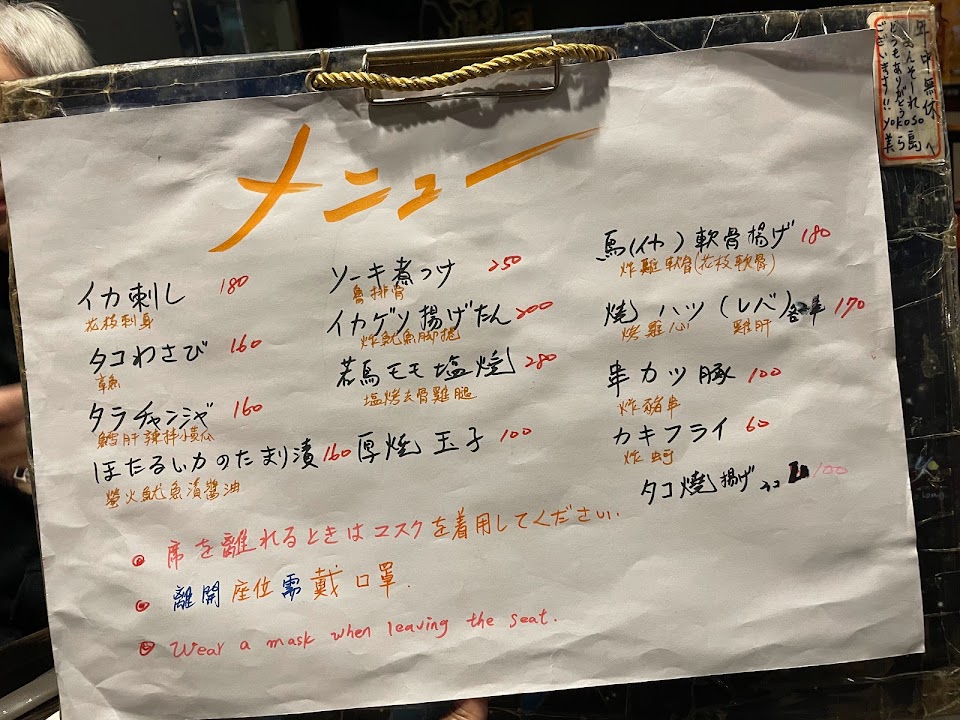 メニュー
イカ刺し 180
花枝刺身
タコわさび 160
タラチャンジャ 160
鱈肝辣拌小黄瓜
ほたるいカのたまり漬 160
螢火魷魚漬醬油
ソーキ煮つけ 250
魯排骨
イカゲソ揚げたん 200
炸魷魚脚
若鳥モモ塩焼 280
塩烤去骨雞腿
厚焼玉子 100
鳥(イカ)軟骨揚げ 180
炸雞軟骨(花枝軟骨)
焼ハツ(レバ) 170
烤雞心 雞肝
串カツ豚 100
炸豬串
カキフライ 60
炸蚵
タコ焼揚げ 100
席を離れるときはマスクを着用してください.
離開座位需戴口罩.
Wear a mask when leaving the seat.
年中無休
めんそーれ
どうもありがとう
ございます!!
yokoso